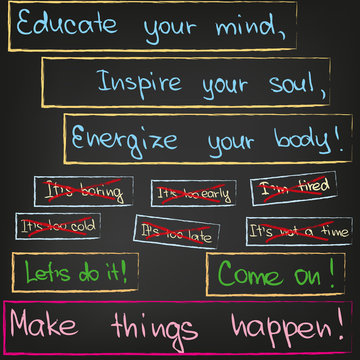 Educate your mind,
Inspire your soul,
Energize your body!
It's boring
It's too early
I'm tired
It's too cold
It's too late
It's not a time
Let's do it!
Come on!
Make things happen!